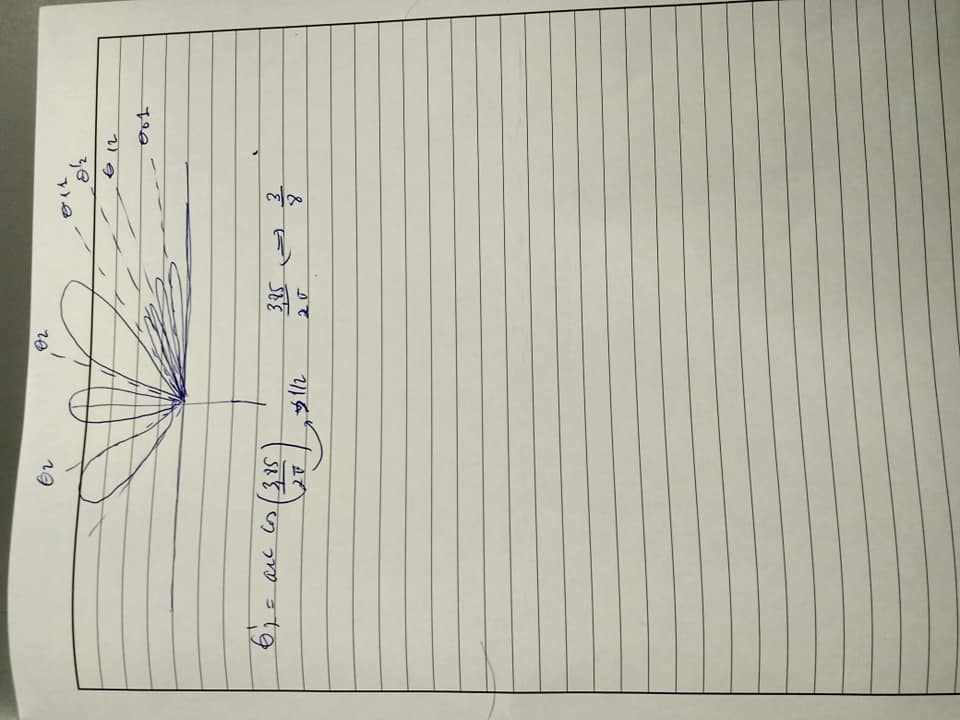 θ2 θ2 θ11
θ'2
θ12
θ01
θ'2 = arc cos (3,85/2π) → 1/2 3,85/2π ⇒ 3/8